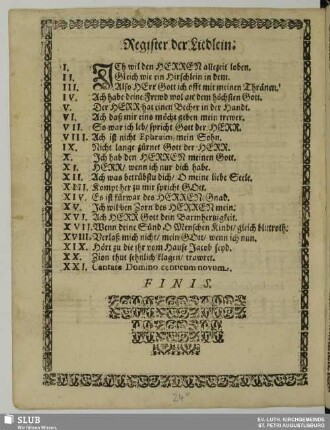 Register der Liedlein:
I. ICh wil den HERREN allezeit loben.
II. Gleich wie ein Hirschlein in dem.
III. Also HErr Gott ich offt mit meinen Thränen.
IV. Ach habe deine Frewd wol an dem höchsten Gott.
V. Der HERR hat einen Becher in der Handt.
VI. Ach daß mir eins möcht geben mein trewer.
VII. So war ich leb/ spricht Gott der HERR.
VIII. Ach ist nicht Ephraim, mein Sohn.
IX. Nicht lange zürnet Gott der HERR.
X. Ich hab den HERREN meinen Gott.
XI. HERR/ wenn ich nur dich habe.
XII. Ach was betrübstu dich/ O meine liebe Seele.
XIII. Kompt her zu mir spricht GOtt.
XIV. Es ist fürwar des HERREN Gnad.
XV. Ich wil den Zorn des HERREN mein.
XVI. Ach HERR Gott dein Barmhertzigkeit.
XVII. Wenn deine Sünd O Menschen Kindt/ gleich blutroth.
XVIII. Verlaß mich nicht/ mein GOtt/ wenn ich nun.
XIX. Hört zu die ihr vom Hause Jacob seyd.
XX. Zion thut sehnlich klagen/ trawret.
XXI. Cantate Domino canticum novum.
FINIS.
24
SLUB
Wir führen Wissen.
EV. LUTH. KIRCHGEMEINDE
ST. PETRI AUGUSTUSBURG